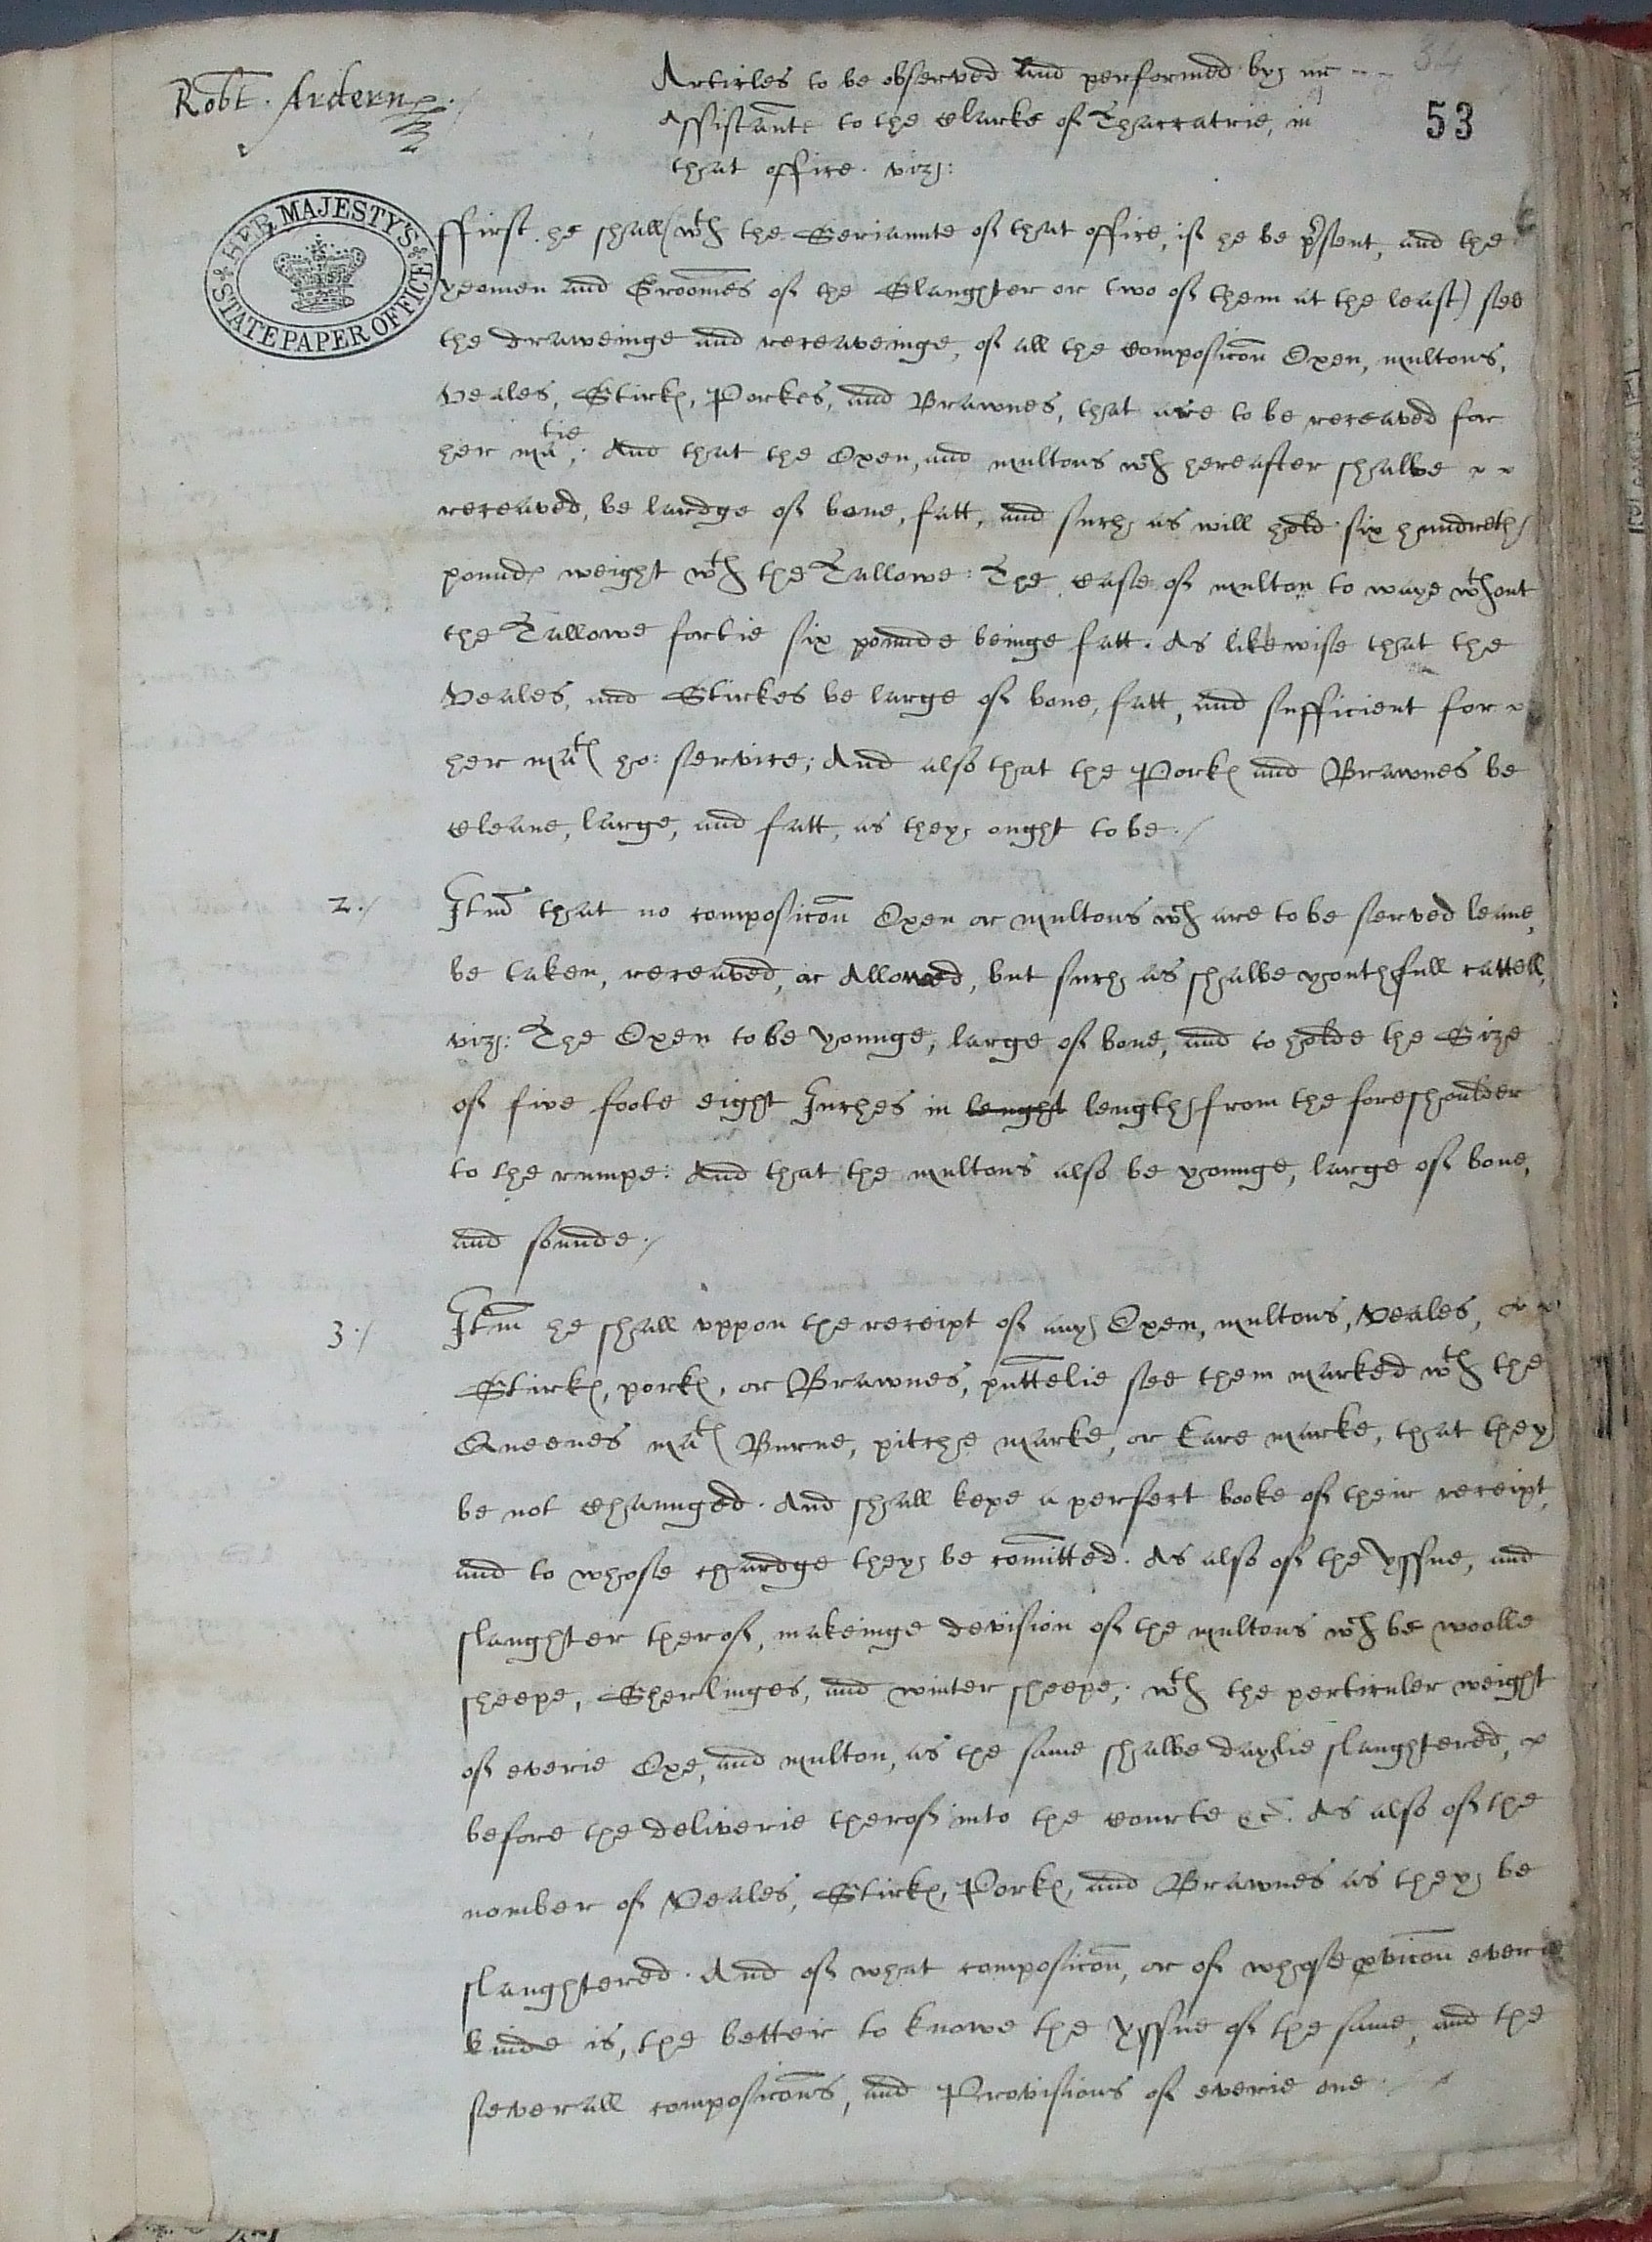 34
Robt. Ardern
Articles to be observed and performed by mr
Assistante to the Clarke of Thaccatrie, in
53
that office. viz:
HER MAJESTY'S
STATE PAPER OFFICE
ffirst he shall (wth the Seriaunte of that office, if he be p'sent, and the
yeomen and Groomes of the Slaughter or two of them at the least) see
the draweinge and receaveinge, of all the Composicon Oxen, multons,
Veales, Stirkes, Porkes, and Brawnes, that are to be receaved for
her matie; And that the Oxen, and multons wch hereafter shalbe
receaved, be lardge of bone, fatt, and such as will hold six hundreth
poundes weight wth the Tallowe: The Case of multon to waye wthout
the Tallowe fortie six pounde beinge fatt. As likewise that the
Veales, and Stirkes be large of bone, fatt, and sufficient for
her mats ho: service; And also that the Porkes and Brawnes be
Cleane, large, and fatt, as they ought to be ./
2./ Itm that no composicon Oxen or multons wch are to be served leane,
be taken, receaved, or Allowed, but such as shalbe youthfull cattell,
viz: The Oxen to be younge, large of bone, and to holde the Size
of five foote eight Inches in lenght length from the foreshoulder
to the rumpe: And that the multons also be younge, large of bone,
and sounde ./
3./ Itm he shall uppon the receipt of any Oxen, multons, Veales,
Stirkes, porkes, or Brawnes, pnttelie see them marked wth the
Queenes mats Burne, pitche marke, or Eare marke, that they
be not Chaunged. And shall kepe a perfect booke of their receipt,
and to whose chardge they be comitted. As also of the yssue, and
slaughter therof, makeinge devision of the multons wch be woolle
sheepe, Sherlinges, and winter sheepe; wth the perticuler weight
of everie Oxe, and multon, as the same shalbe daylie slaughtered,
before the deliverie therof into the Courte &c. As also of the
nomber of Veales, Stirkes, Porkes, and Brawnes as they be
slaughtered. And of what composicon, or of whose pvicon everie
kinde is, the better to knowe the yssue of the same, and the
severall composicons, and Provisions of everie one.